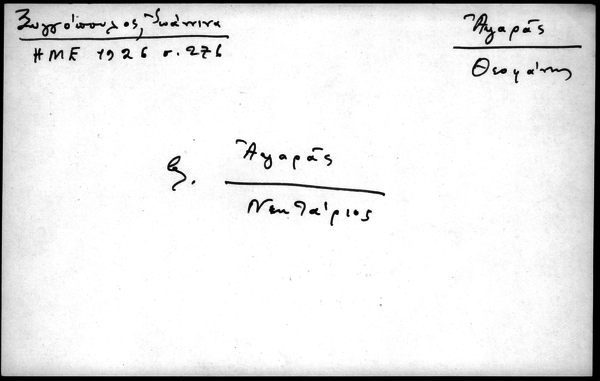 Ξυγγόπουλος, Ἰωάννινα
ΗΜΕ 1926 σ. 276
Ἀγαρᾶς
Θεοφάνης
Ἀγαρᾶς
Νεκτάριος